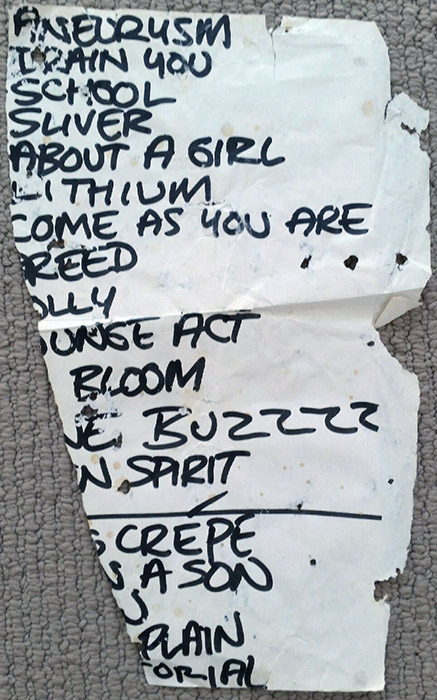 ANEURYSM
DRAIN YOU
SCHOOL
SLIVER
ABOUT A GIRL
LITHIUM
COME AS YOU ARE
REED
OLLY
OUNGE ACT
BLOOM
NE BUZZZZ
N SPIRIT
S CREPE
S A SON
U
PLAIN
ORIAL